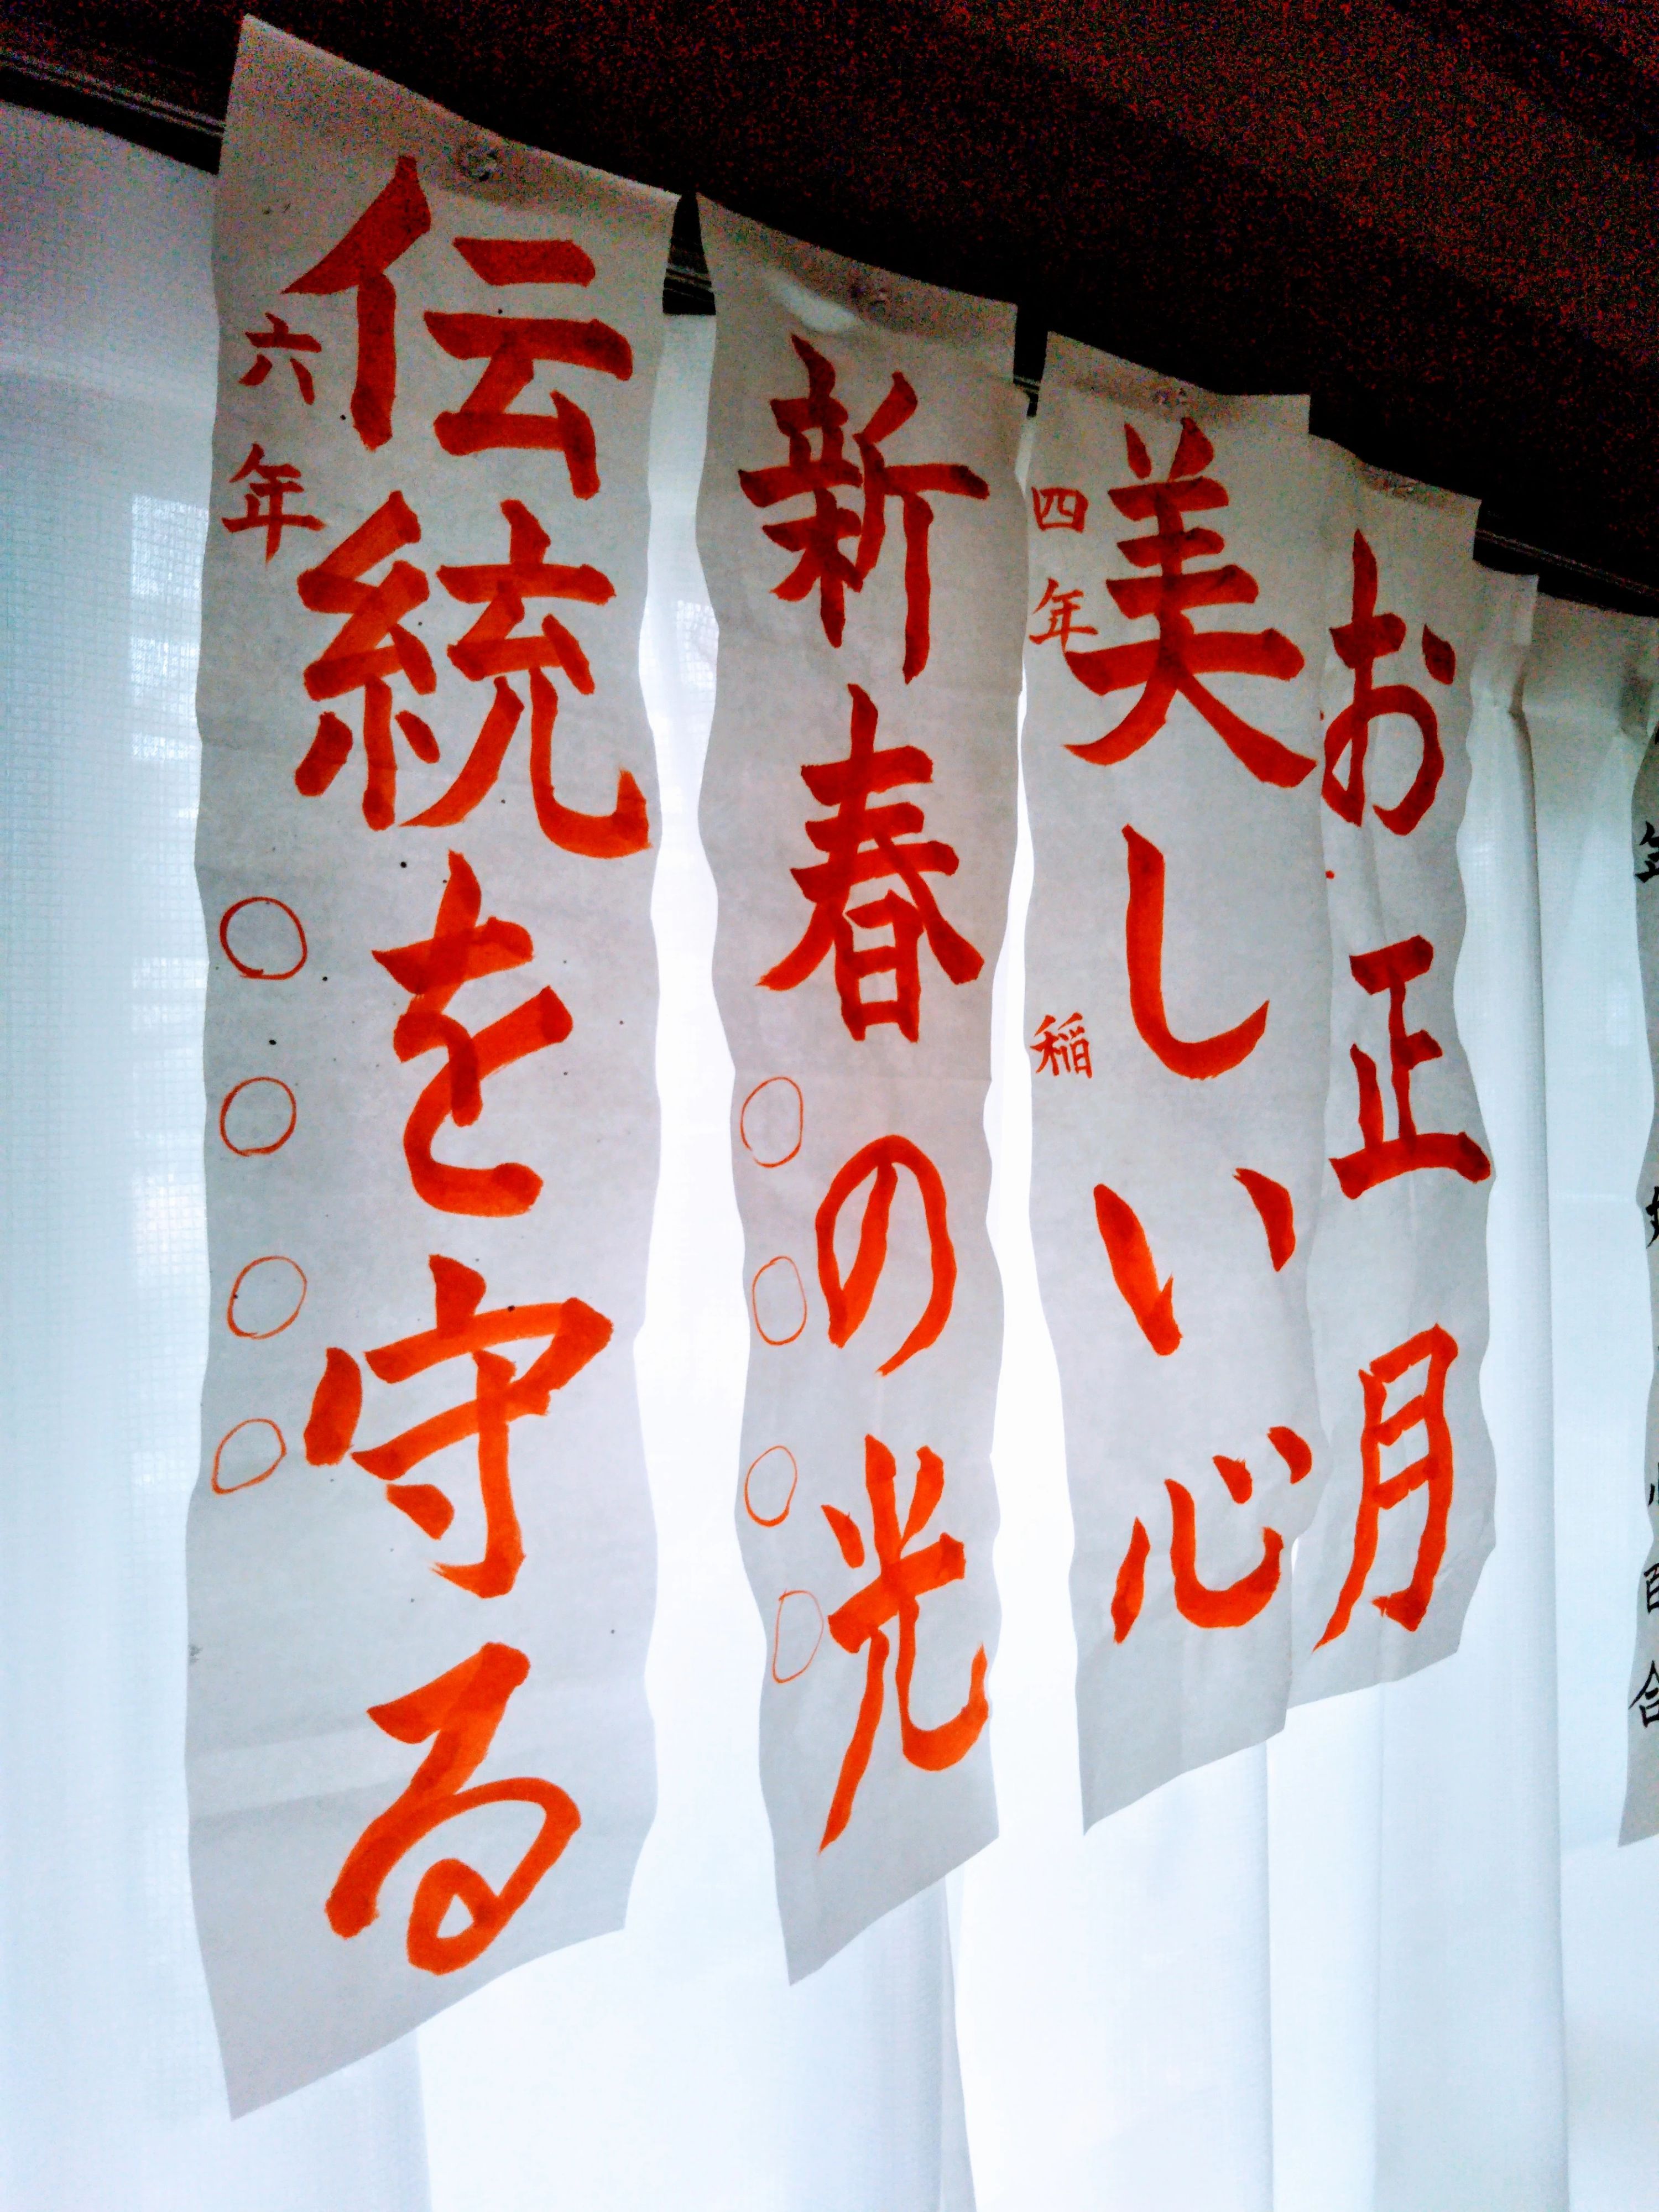 お正月
美しい心
四年 稲
新春の光
〇〇〇〇
伝統を守る
六年 〇〇〇〇